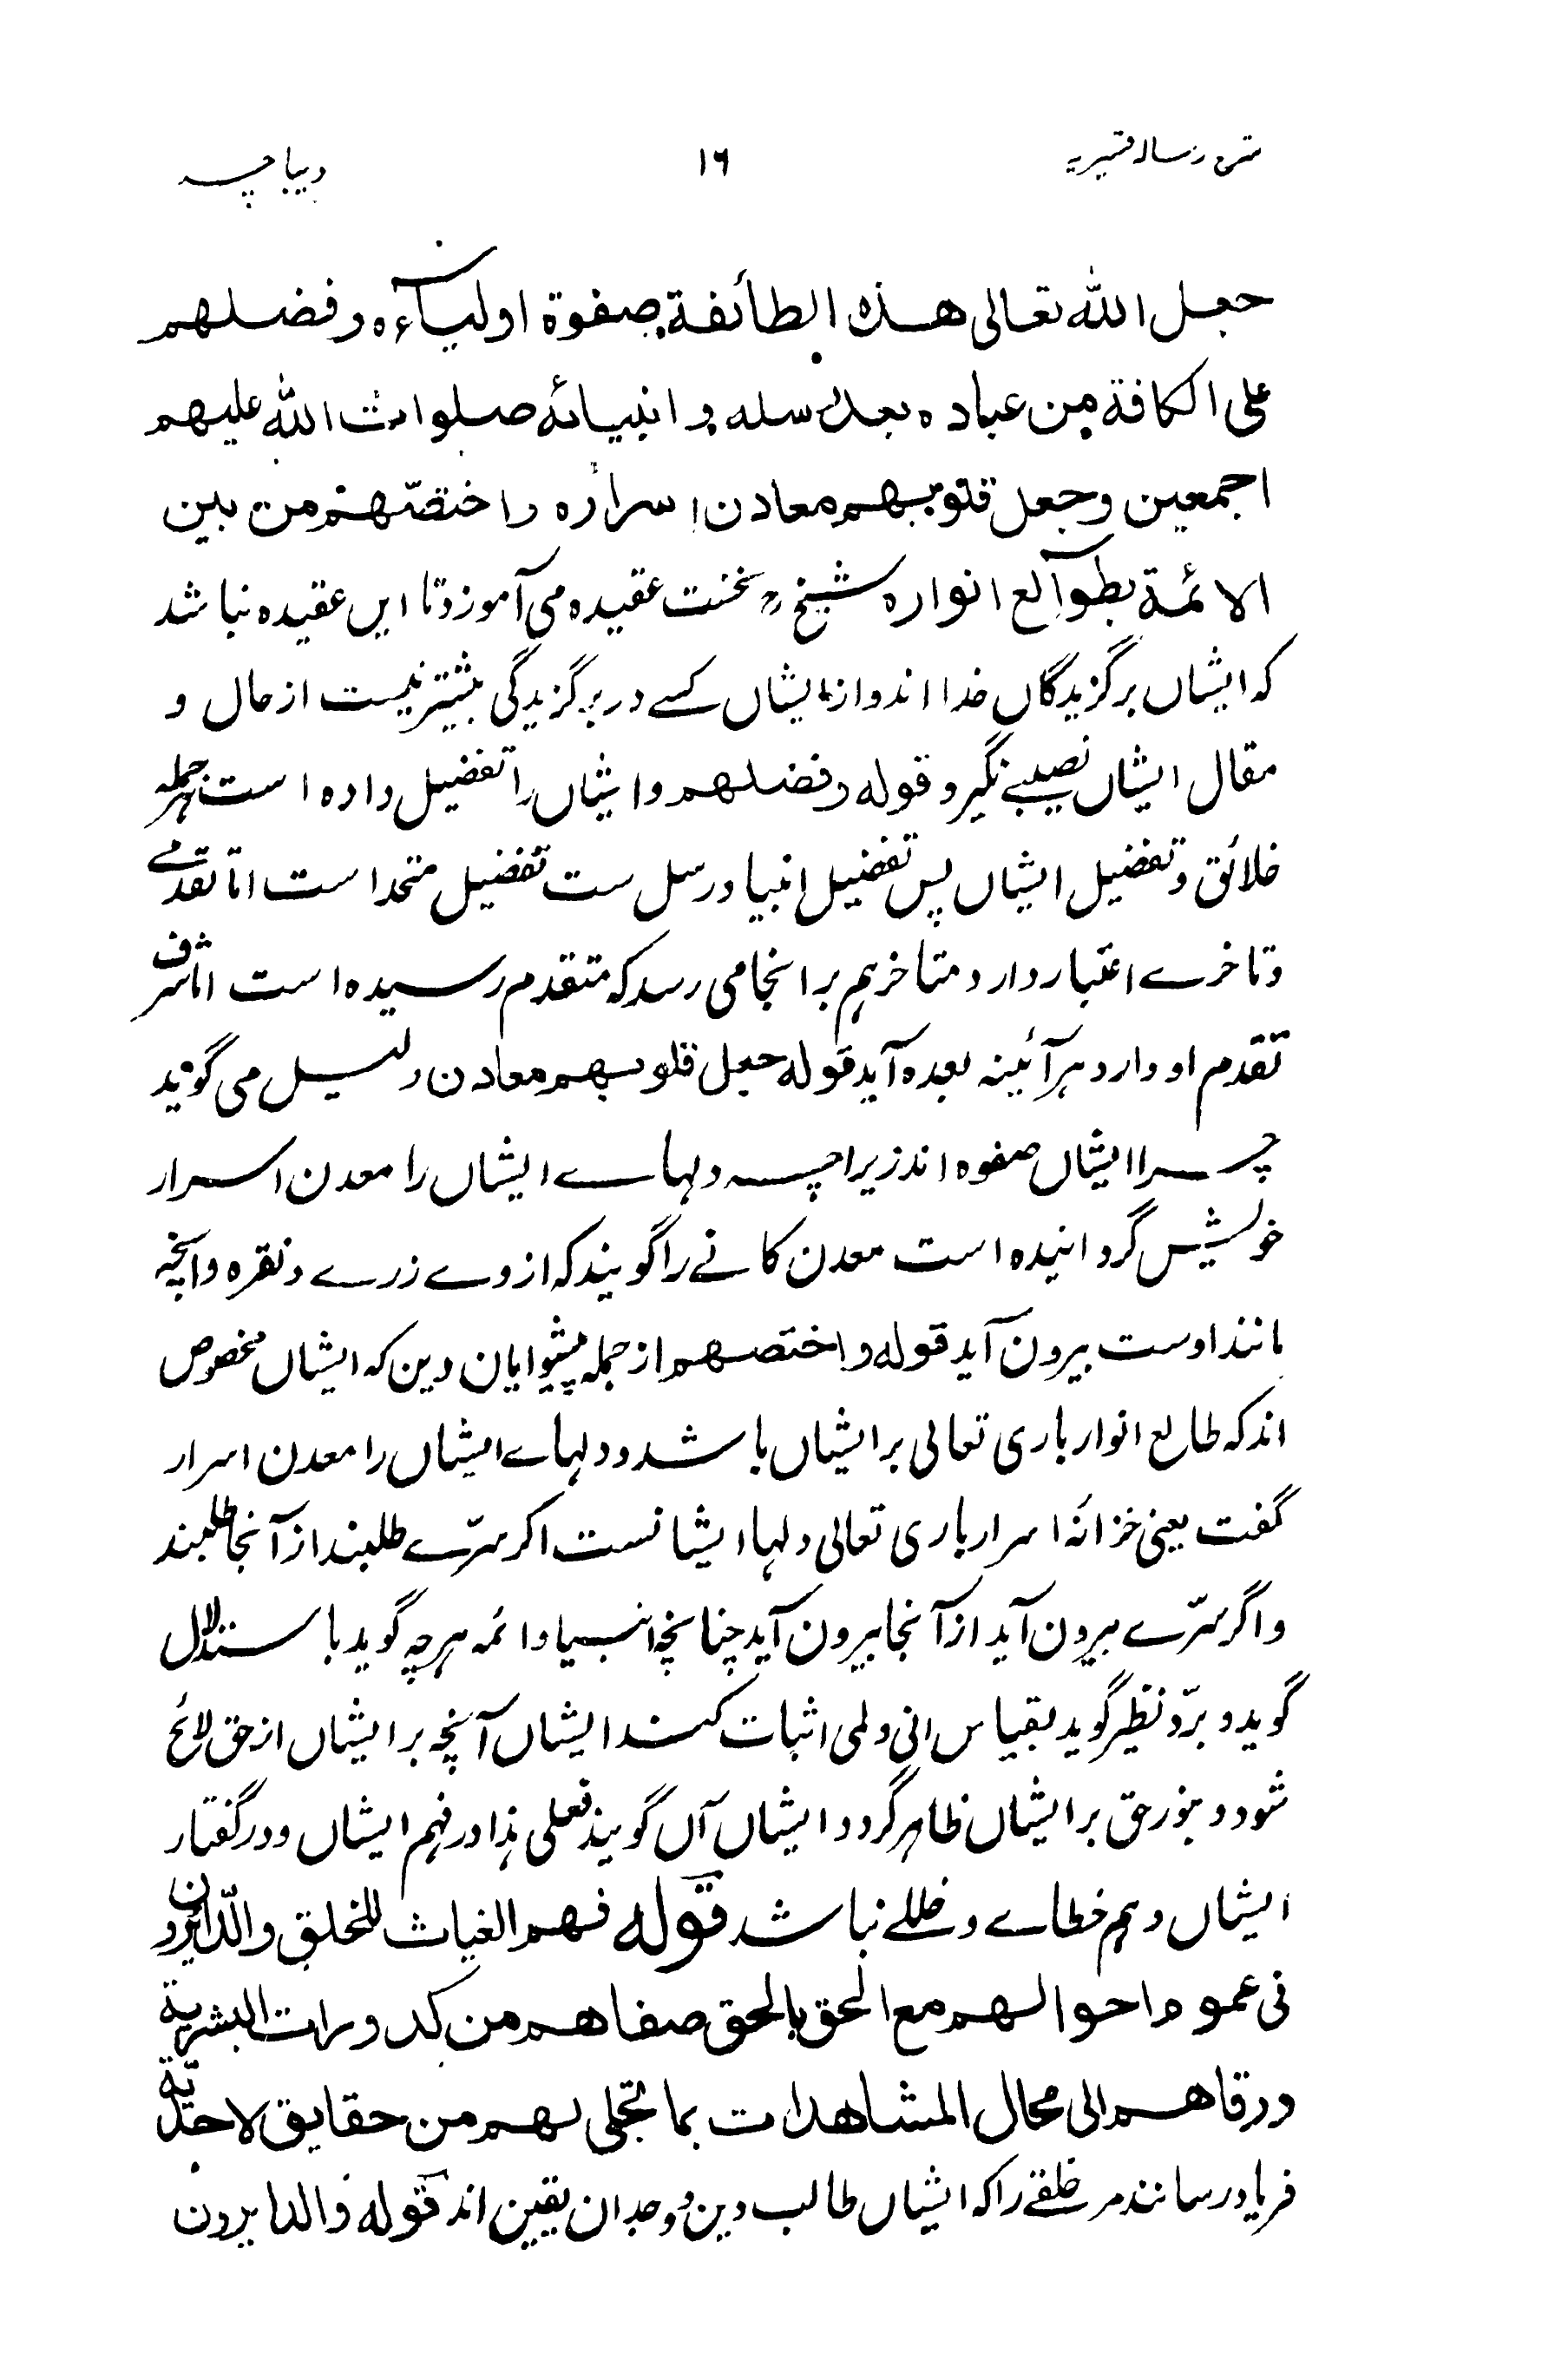 متن رسالہ قشیریہ ۱۶ دیباچہ
جعل اللہ تعالی ھذہ الطائفة صفوة اولیآءہ و فضلھم
علی الکافة من عبادہ بعد رسلہ و انبیائہ صلوات اللہ علیھم
اجمعین وجعل قلوبھم معادن اسرارہ و اختصّھم من بین
الائمة بطوآلع انوارہ شیخؒ نخست عقیدہ می آموزد تا ایں عقیدہ نباشد
کہ ایشاں برگزیدگاں خدا اند و از ایشاں کسے در برگزیدگی بیشتر نیست از حال و
مقال ایشاں نصیبے نگیرد قولہ و فضلھم و ایشاں را تفضیل دادہ است برجملہ
خلائق و تفضیل ایشاں پس تفضیل انبیا و رسل ست تفضیل متحد است اما تقدمے
و تاخرے اعتبار دارد و متاخر ہم بر انجا می رسد کہ متقدم رسیدہ است اما شرف
تقدم او دارد ہر آئینہ بعدہ آید قولہ جعل قلوبھم معادن دلیل می گوید
چرا ایشاں صفوہ اند زیراچہ دلہاے ایشاں را معدن اسرار
خویش گردانیدہ است معدن کانے را گویند کہ از وے زرے و نقرہ و آنچہ
مانند اوست بیرون آید قولہ و اختصھم از جملہ پیشوایان دین کہ ایشاں مخصوص
اند کہ طالع انوار باری تعالی بر ایشاں باشد و دلہاے ایشاں را معدن اسرار
گفت یعنی خزانہ اسرار باری تعالی دلہا ایشانست اگر سرّے طلبند از آنجا طلبند
و اگر سرّے بیرون آید از آنجا بیرون آید چنانچہ انبیا و ائمہ ہرچہ گوید باستدلال
گوید و بردّ نظیر گوید بقیاس انی و لمی اثبات کنند ایشاں آنچہ بر ایشاں از حق لائح
شود و بنور حق بر ایشاں ظاہر گردد ایشاں آں گویند فعلی ہذا در فہم ایشاں و در گفتار
ایشاں وہم خطاے و خللے نباشد قولہ فھم الغیاث للخلق والدّائرون
فی عموم احوالھم مع الحق بالحق صفاھم من کدورات البشریة
و رقاھم الی محال المشاھدات بما تجلی لھم من حقایق لاحدیّة
فریاد رسانند مر خلقے را کہ ایشاں طالب دین و وجدان یقین اند قولہ والدایرون